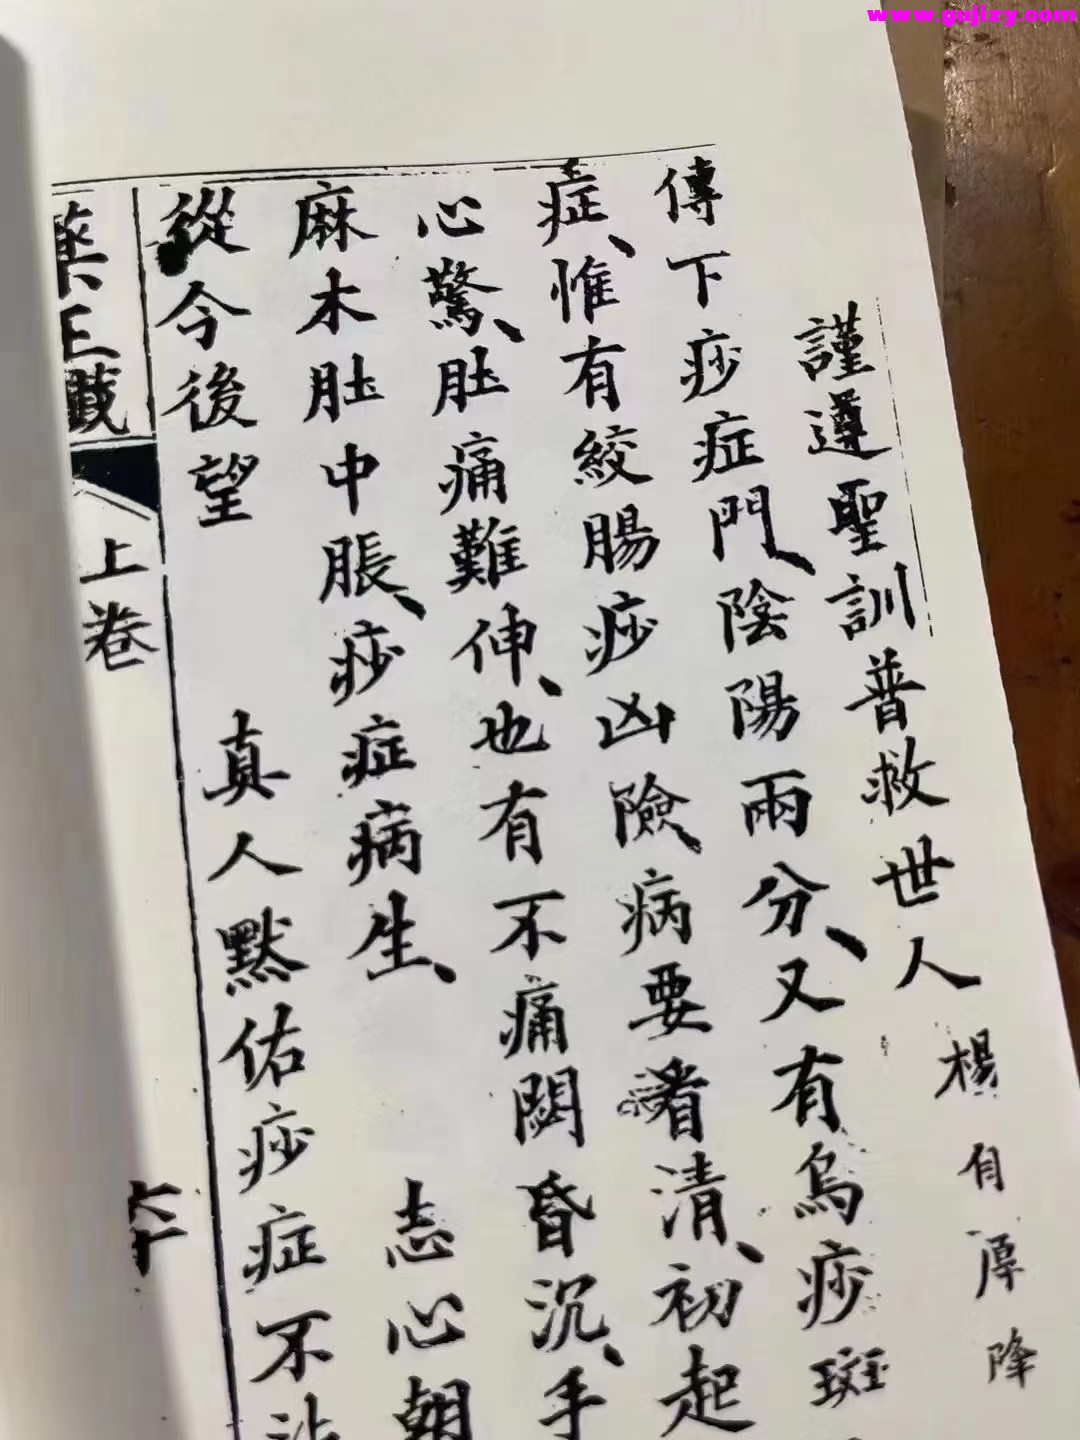 www.gujizy.com
謹遵聖訓普救世人 楊自厚降
傳下痧症門、陰陽兩分、又有烏痧斑
症、惟有絞腸痧凶險、病要看清、初起
心驚、肚痛難伸、也有不痛閟昏沉、手
麻木肚中脹、痧症病生、 志心朝
從今後望 真人默佑痧症不沾
藥王懺 上卷